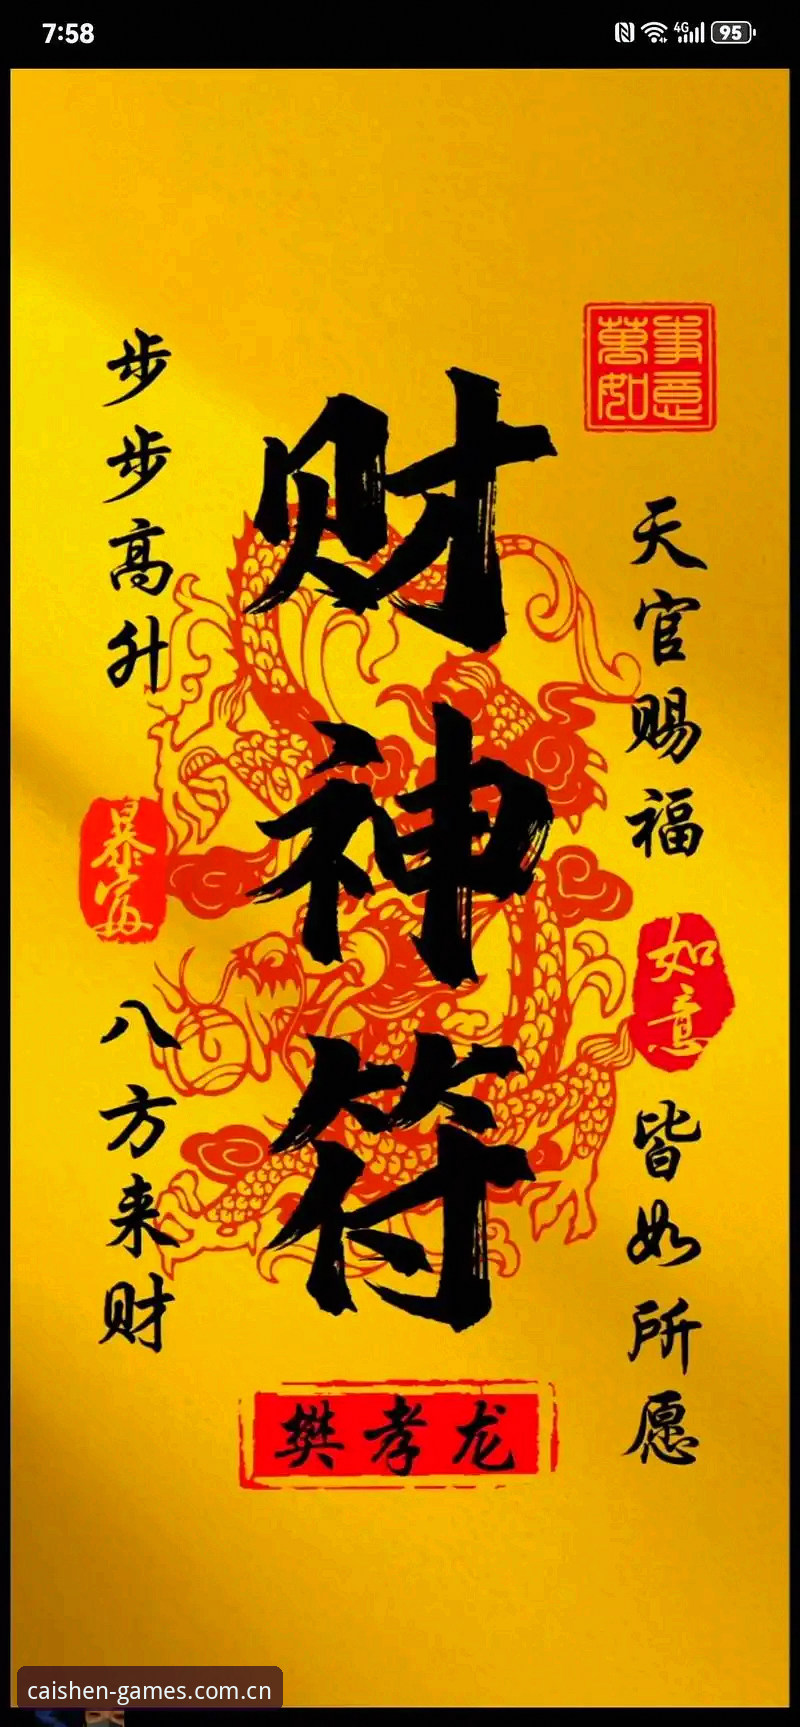 7:58
4G
95
萬事如意
步步高升
财神符
天官赐福
暴富
如意
八方来财
皆如所愿
樊孝龙
caishen-games.com.cn